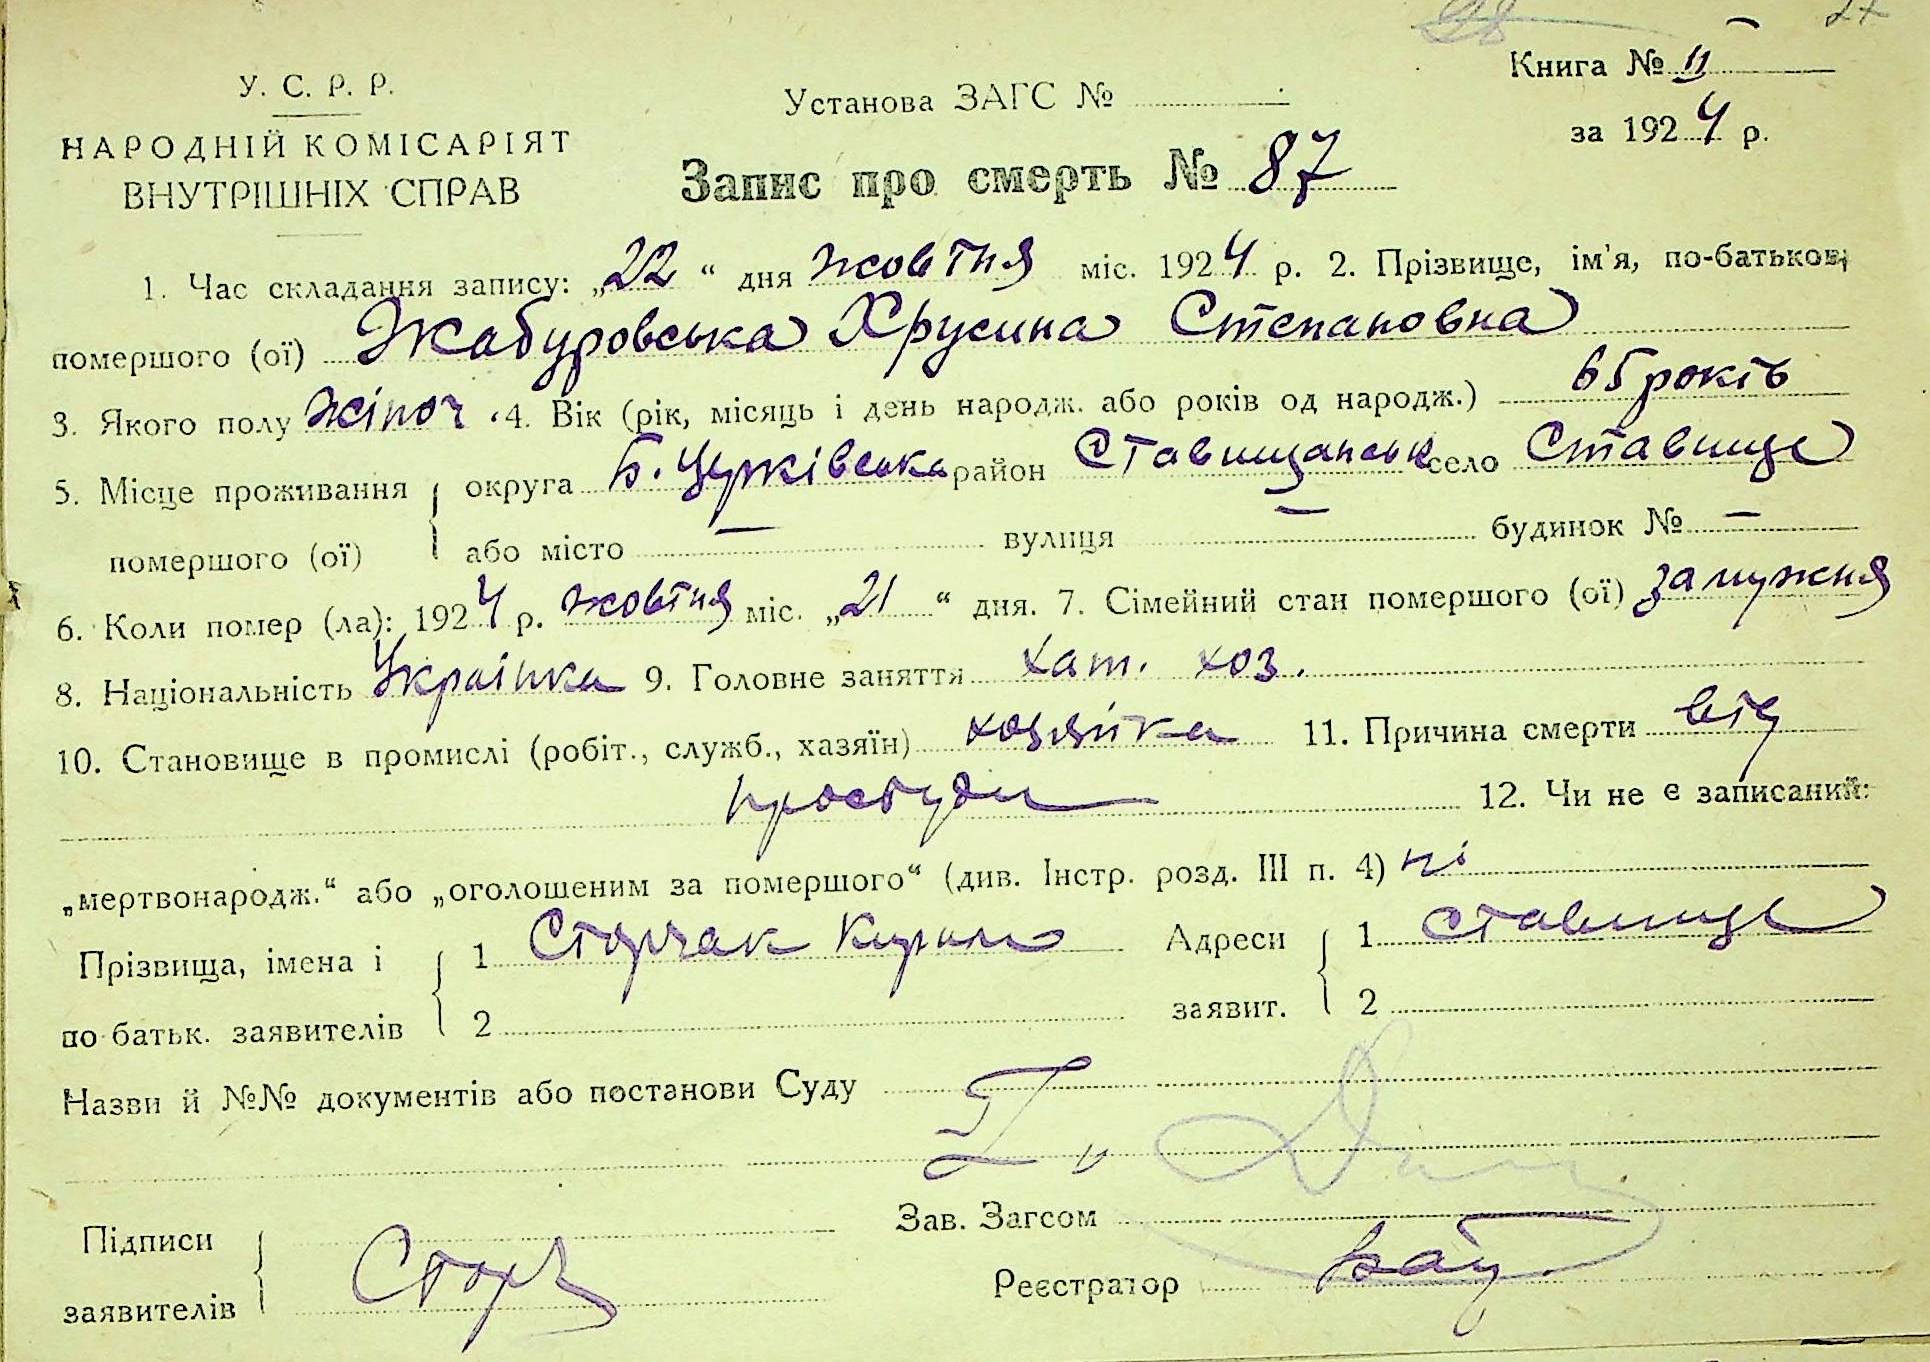 Книга № II
У. С. Р. Р.
Установа ЗАГС №
за 1924 р.
НАРОДНІЙ КОМІСАРІЯТ
ВНУТРІШНІХ СПРАВ
Запис про смерть № 87
1. Час складання запису: „22“ дня жовтня міс. 1924 р. 2. Прізвище, ім'я, по-батькові
помершого (ої) Жабуровська Хрусина Степановна
3. Якого полу жіноч. 4. Вік (рік, місяць і день народж. або років од народж.) 65 років
5. Місце проживання округа Б. Церківська район Ставищанськ село Ставище
помершого (ої) або місто — вулиця — будинок № —
6. Коли помер (ла): 1924 р. жовтня міс. „21“ дня. 7. Сімейний стан помершого (ої) замужня
8. Національність Українка 9. Головне заняття хат. хоз.
10. Становище в промислі (робіт., служб., хазяїн) хозяйка 11. Причина смерти від
простуди 12. Чи не є записаний:
„мертвонародж.“ або „оголошеним за помершого“ (див. Інстр. розд. III п. 4) ні
Прізвища, імена і 1 Сторчак Кирило Адреси 1 Ставище
по батьк. заявителів 2 заявит. 2
Назви й №№ документів або постанови Суду
Зав. Загсом
Підписи
Реєстратор
заявителів